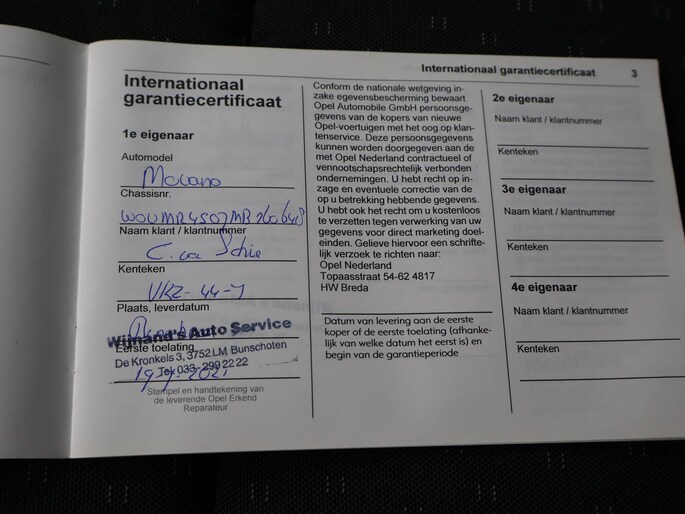 Internationaal garantiecertificaat 3
Internationaal
garantiecertificaat
1e eigenaar
Automodel
Movano
Chassisnr.
Naam klant / klantnummer
C. van Schie
Kenteken
VKZ-44-J
Plaats, leverdatum
Wijnand's Auto Service
Eerste toelating
De Kronkels 3, 3752 LM Bunschoten
Tel. 033-299 22 22
Stempel en handtekening van
de leverende Opel Erkend
Reparateur
Conform de nationale wetgeving in-
zake egevensbescherming bewaart
Opel Automobile GmbH persoonsge-
gevens van de kopers van nieuwe
Opel-voertuigen met het oog op klan-
tenservice. Deze persoonsgegevens
kunnen worden doorgegeven aan de
met Opel Nederland contractueel of
vennootschapsrechtelijk verbonden
ondernemingen. U hebt recht op in-
zage en eventuele correctie van de
op u betrekking hebbende gegevens.
U hebt ook het recht om u kostenloos
te verzetten tegen verwerking van uw
gegevens voor direct marketing doel-
einden. Gelieve hiervoor een schrifte-
lijk verzoek te richten naar:
Opel Nederland
Topaasstraat 54-62 4817
HW Breda
Datum van levering aan de eerste
koper of de eerste toelating (afhanke-
lijk van welke datum het eerst is) en
begin van de garantieperiode
2e eigenaar
Naam klant / klantnummer
Kenteken
3e eigenaar
Naam klant / klantnummer
Kenteken
4e eigenaar
Naam klant / klantnummer
Kenteken